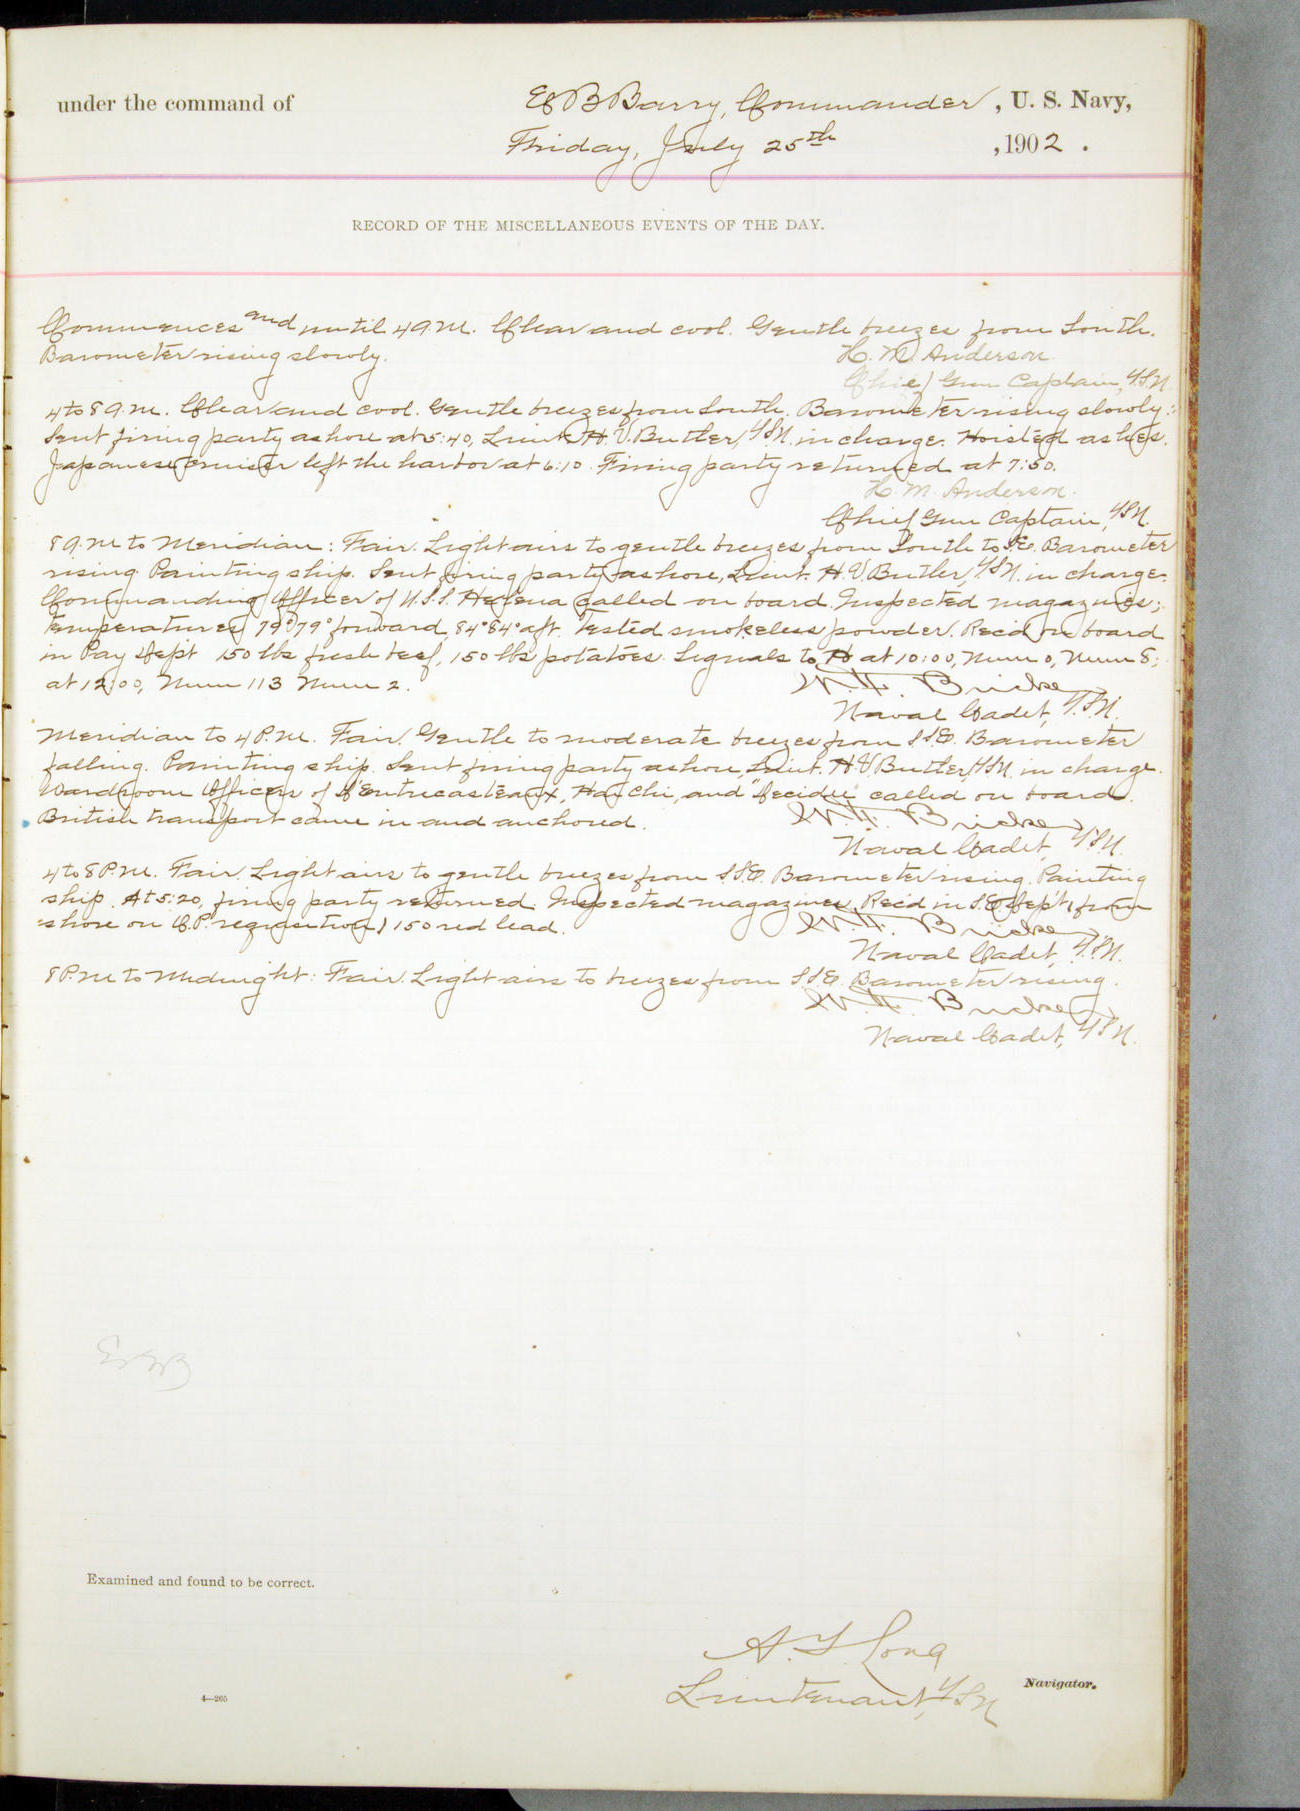 under the command of E B Barry, Commander, U. S. Navy,
Friday, July 25th, 1902.
RECORD OF THE MISCELLANEOUS EVENTS OF THE DAY.
Commences and until 4 A.M. Clear and cool. Gentle breezes from South.
Barometer rising slowly. H. M. Anderson
Chief Gun Captain, U.S.N.
4 to 8 A.M. Clear and cool. Gentle breezes from South. Barometer rising slowly.
Sent firing party ashore at 5:40, Lieut. H. V. Butler, U.S.N. in charge. Hoisted ashes.
Japanese cruiser left the harbor at 6:10. Firing party returned at 7:50.
H. M. Anderson.
Chief Gun Captain, U.S.N.
8 A.M. to Meridian: Fair. Light airs to gentle breezes from South to S.E. Barometer
rising. Painting ship. Sent firing party ashore, Lieut. H. V. Butler, U.S.N. in charge.
Commanding Officer of U.S.S. Helena called on board. Inspected magazines;
temperatures 79° 79° forward, 84° 84° aft. Tested smokeless powder. Rec'd on board
in Pay Dept 150 lbs fresh beef, 150 lbs potatoes. Signals to H at 10:00, Num 0, Num 8;
at 12:00, Num 113 Num 2. W. F. Bricker
Naval Cadet, U.S.N.
Meridian to 4 P.M. Fair. Gentle to moderate breezes from S.S.E. Barometer
falling. Painting ship. Sent firing party ashore, Lieut. H V Butler, U.S.N. in charge.
Wardroom Officers of D'Entrecasteaux, Hai Chi, and "Decidee" called on board.
British transport came in and anchored. W. F. Bricker
Naval Cadet, U.S.N.
4 to 8 P.M. Fair. Light airs to gentle breezes from S.S.E. Barometer rising. Painting
ship. At 5:20, firing party returned. Inspected magazines. Rec'd in S.E. Dep't, from
shore on O.P. requisition, 150 red lead. W. F. Bricker
Naval Cadet, U.S.N.
8 P.M. to Midnight: Fair. Light airs to breezes from S.S.E. Barometer rising.
W. F. Bricker
Naval Cadet, U.S.N.
Examined and found to be correct.
A. T. Long
Lieutenant, U.S.N Navigator.
4—265